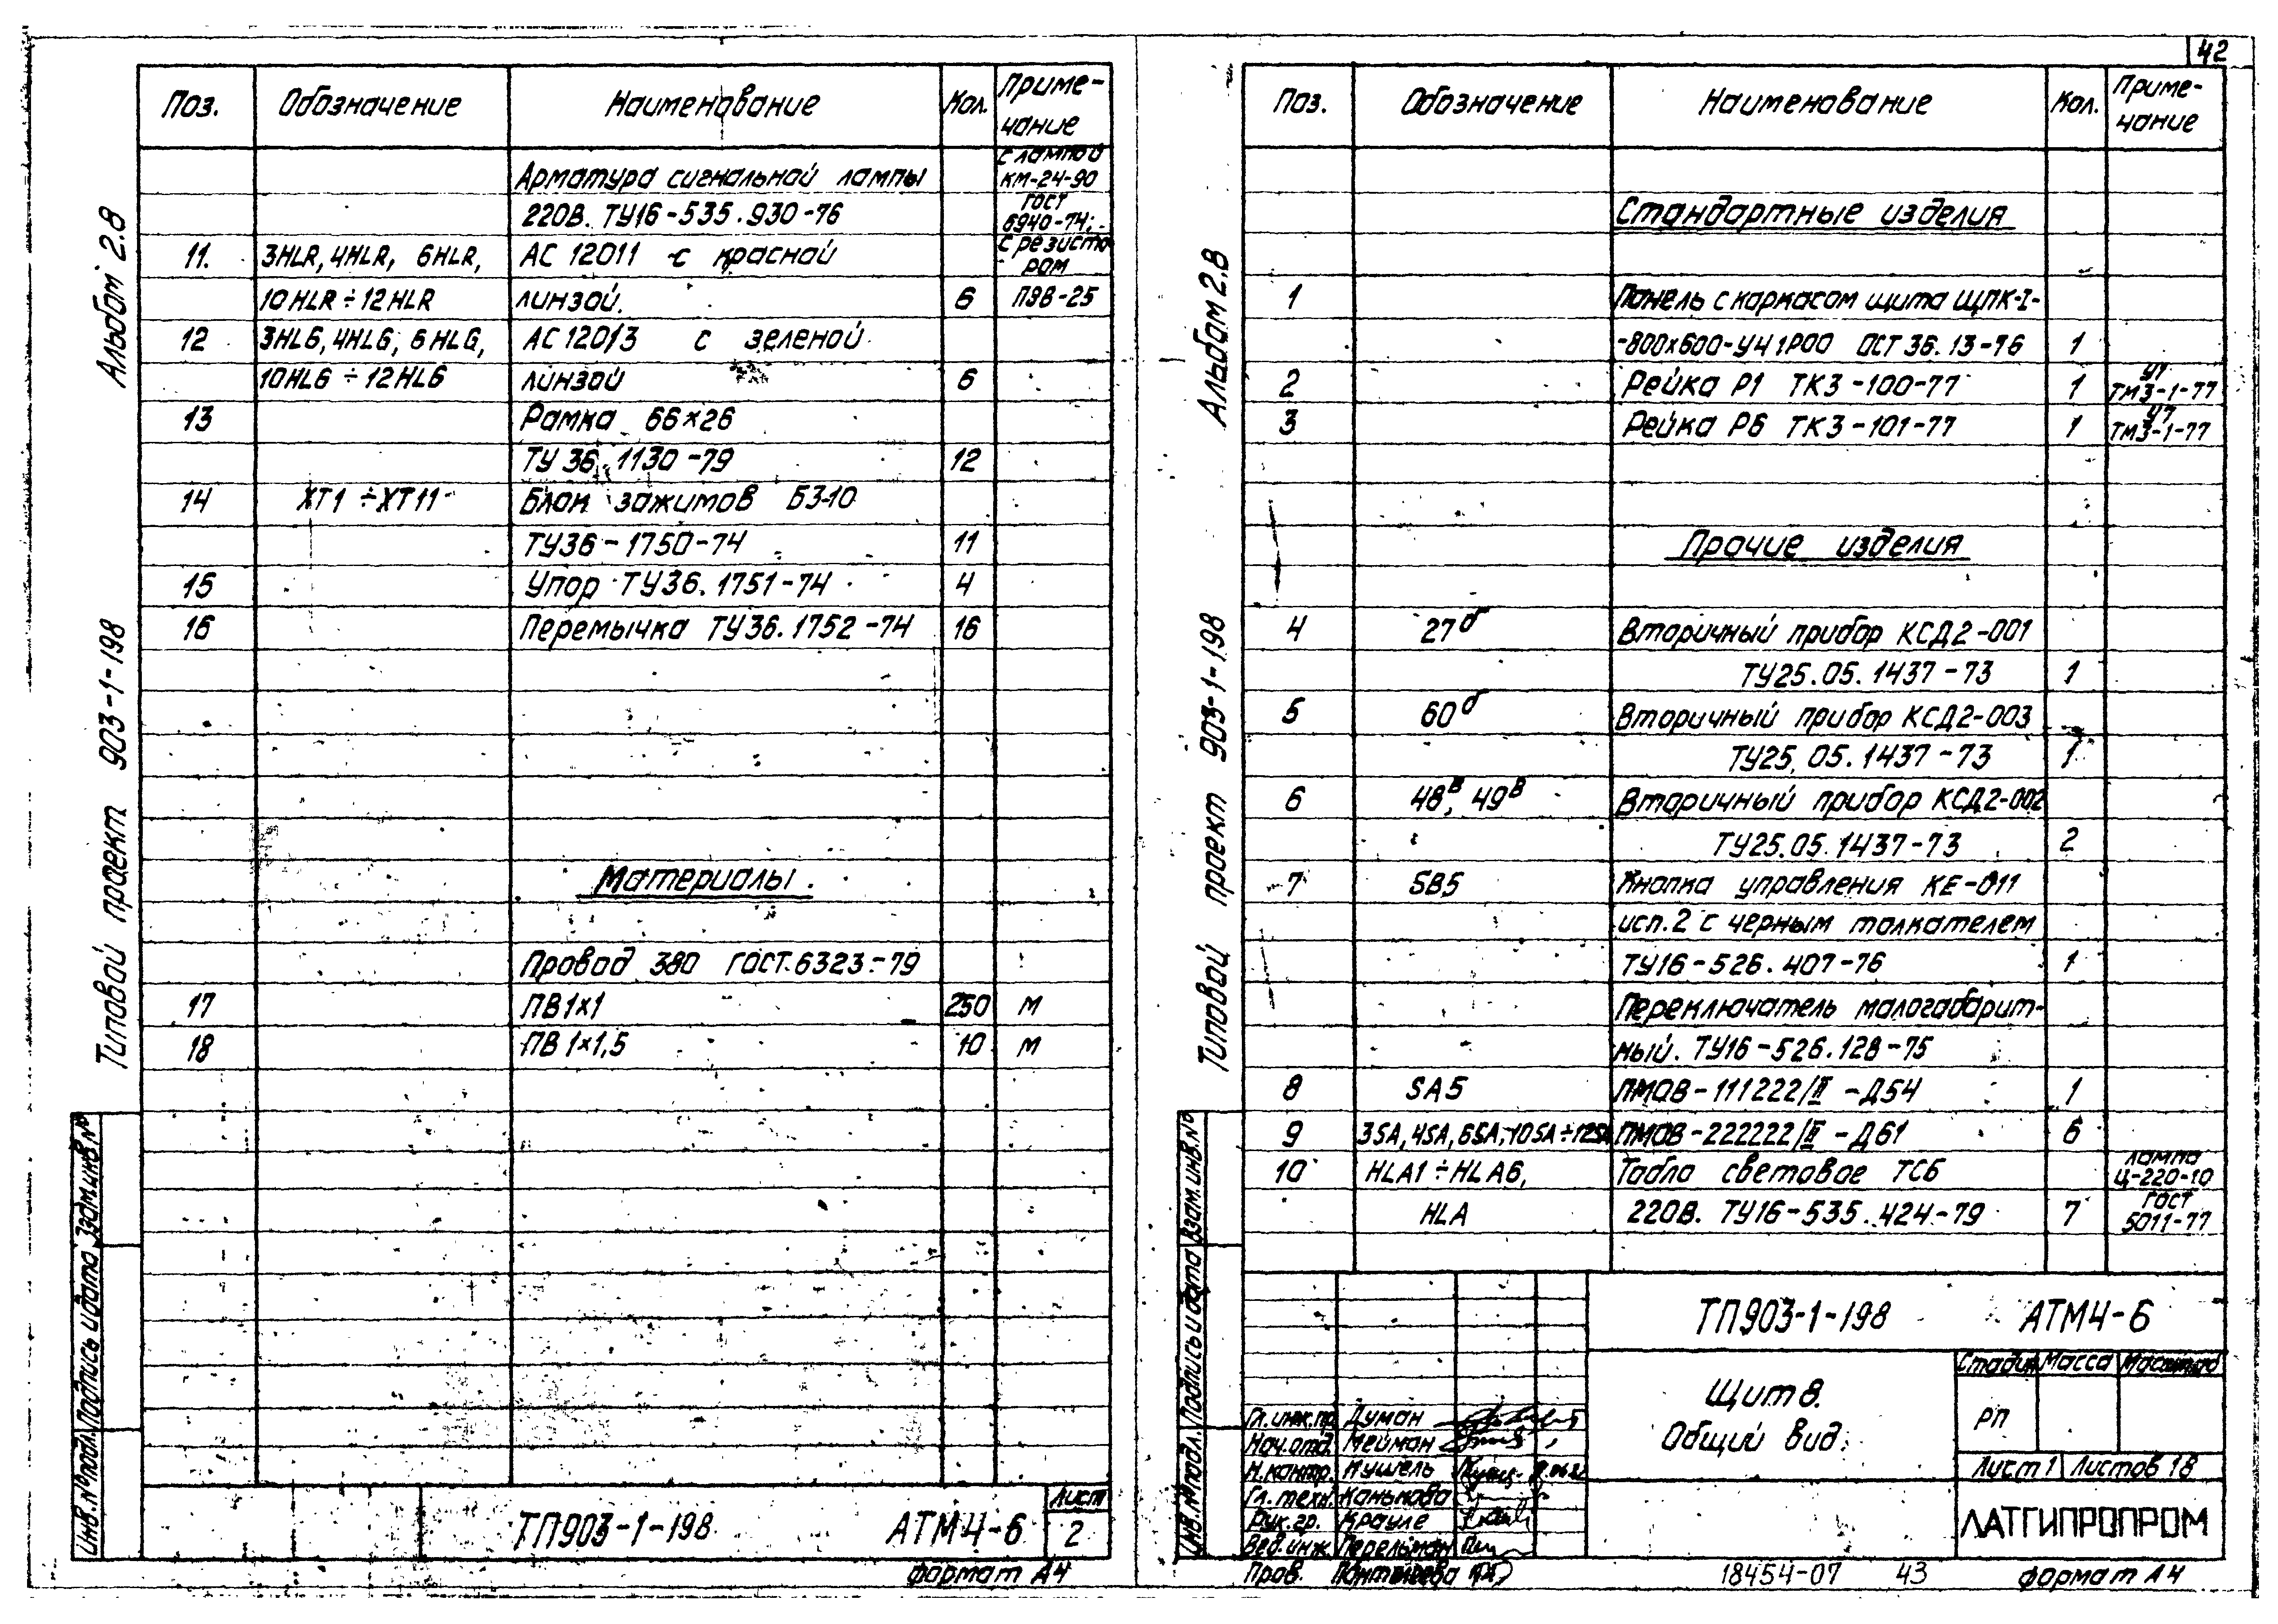 42
Альбом 2.8
Типовой проект 903-1-198
Поз. Обозначение Наименование Кол. Приме-
чание
Арматура сигнальной лампы
220В. ТУ16-535.930-76
с лампой
КМ-24-90
ГОСТ
6940-74;
с резисто
ром
ПЭВ-25
11. 3HLR, 4HLR, 6HLR, АС 12011 с красной
10HLR ÷ 12HLR линзой. 6
12 3HLG, 4HLG, 6HLG, АС 12013 с зеленой
10HLG ÷ 12HLG линзой 6
13 Рамка 66×26
ТУ 36.1130-79 12
14 ХТ1 ÷ ХТ11 Блок зажимов БЗ-10
ТУ36-1750-74 11
15 Упор ТУ36.1751-74 4
16 Перемычка ТУ36.1752-74 16
Материалы.
Провод 380 ГОСТ.6323-79
17 ПВ1×1 250 м
18 ПВ 1×1,5 10 м
Инв.№подл. Подпись и дата Взам.инв.№
ТП903-1-198 АТМ4-6
Лист
2
формат А4
Альбом 2.8
Типовой проект 903-1-198
Поз. Обозначение Наименование Кол. Приме-
чание
Стандартные изделия
1 Панель с каркасом щита ЩПК-I-
-800×600-У4 1Р00 ОСТ 36.13-76 1
2 Рейка Р1 ТК3-100-77 1 У1
ТМ3-1-77
3 Рейка Р6 ТК3-101-77 1 У7
ТМ3-1-77
Прочие изделия
4 27б Вторичный прибор КСД2-001
ТУ25.05.1437-73 1
5 60б Вторичный прибор КСД2-003
ТУ25.05.1437-73 1
6 48в, 49в Вторичный прибор КСД2-002
ТУ25.05.1437-73 2
7 SB5 Кнопка управления КЕ-011
исп.2 с черным толкателем
ТУ16-526.407-76 1
Переключатель малогабарит-
ный. ТУ16-526.128-75
8 SA5 ПМОВ-111222/II-Д54 1
9 3SA, 4SA, 6SA, 10SA÷12SA ПМОВ-222222/II-Д61 6
10 HLA1÷HLA6, Табло световое ТСБ
HLA 220В. ТУ16-535.424-79 7
лампа
Ц-220-10
ГОСТ
5011-77
Инв.№подл. Подпись и дата Взам.инв.№
ТП903-1-198 АТМ4-6
Щит 8.
Общий вид.
Стадия Масса Масштаб
РП
Лист 1 Листов 18
ЛАТГИПРОПРОМ
Гл.инж.пр. Думан
Нач.отд. Мейман
Н.контр. Мушель
Гл.техн. Канькова
Рук.гр. Крауле
Вед.инж. Перельман
Пров.
18454-07 43 формат А4